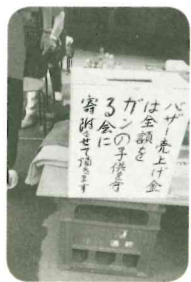 バザー売上げ金
は全額を
ガンの子供を守
る会に
寄附させて頂きます